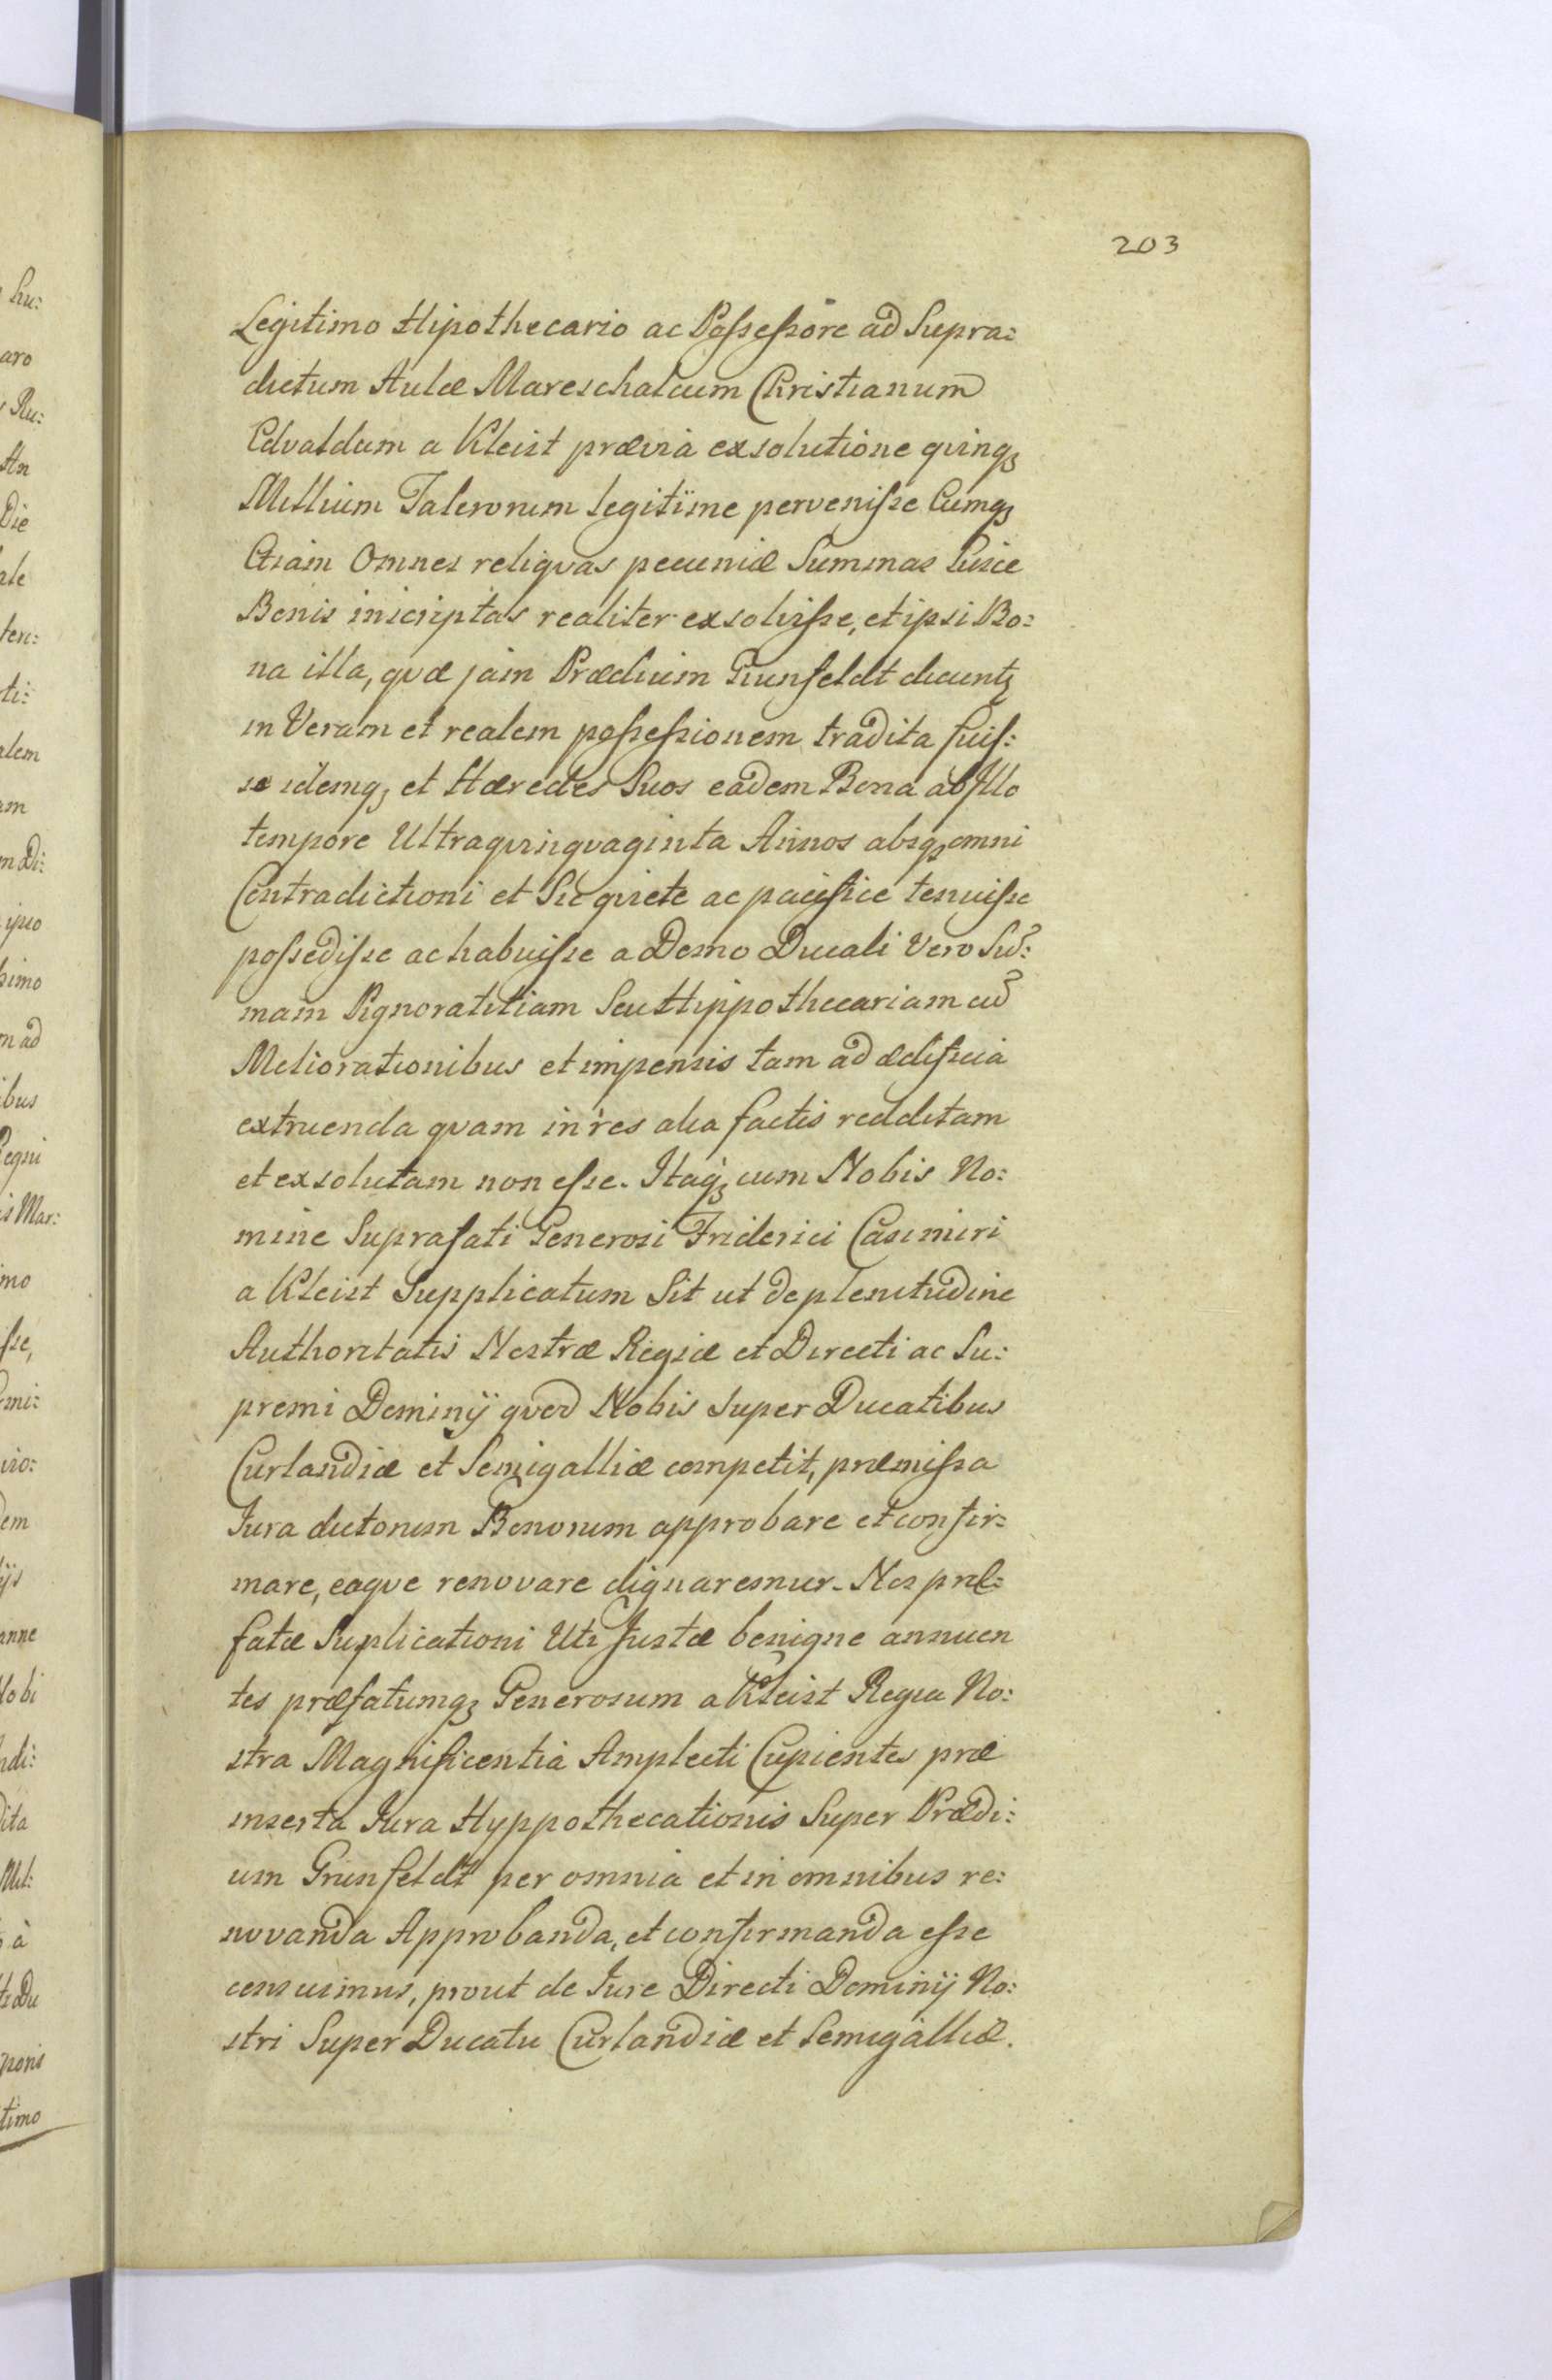 203
Legitimo Hipothecario ac Possessore ad Supra:
dictum Aulæ Mareschalcum Christianum
Edvaldum a Kleist præviâ exsolutione qvinqꝫ
Millium Talerorum legitime pervenisse Cumqꝫ
Etiam Omnes reliqvas pecuniæ Summas
Bonis inscriptas realiter exsolvisse, et ipsi Bo:
na illa, qvæ jam Prædium Grunfeldt dicuntꝫ
in Veram et realem possessionem tradita fuis:
se idemqꝫ et Hæredes Suos eadem Bona ab Illo
tempore Ultraqvinqvaginta Annos absqꝫ omni
Contradictioni et Sic qviete ac pacifice tenuisse
possedisse ac habuisse a Domo Ducali Vero Sū:
mam Pignoratitiam Seu Hippothecariam cū
Meliorationibus et impensis tam ad ædificia
extruenda qvam in res alia factis redditam
et exsolutam non esse. Itaqꝫ cum Nobis No:
mine Suprafati Generosi Friderici Casimiri
a Kleist Supplicatum Sit ut de plenitudine
Authoritatis Nostræ Regiæ et Directi ac Su:
premi Dominÿ qvod Nobis Super Ducatibus
Curlandiæ et Semigalliæ competit, præmissa
Jura dictorum Bonorum approbare et confir:
mare, eaqve renovare dignaremur. Nos præ:
fatæ Suplicationi Uti Justæ benigne annuen
tes præfatumqꝫ Generosum a Kleist Regia No:
stra Magnificentia Amplecti Cupientes præ
inserta Jura Hyppothecationis Super Prædi:
um Grunfeldt per omnia et in omnibus re:
novanda Approbanda, et confirmanda esse
censuimus, prout de Jure Directi Dominÿ No:
stri Super Ducatu Curlandiæ et Semigalliæ.